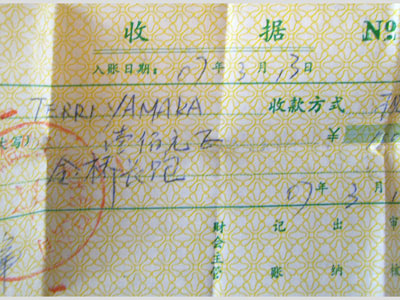 收 据 №
入账日期: 07年3月13日
TERRI YAMAKA 收款方式
壹佰元正 ¥
金桥长跑
07年3月
财会主管 记账 出纳 审核